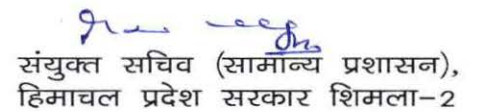 संयुक्त सचिव (सामान्य प्रशासन),
हिमाचल प्रदेश सरकार शिमला-2